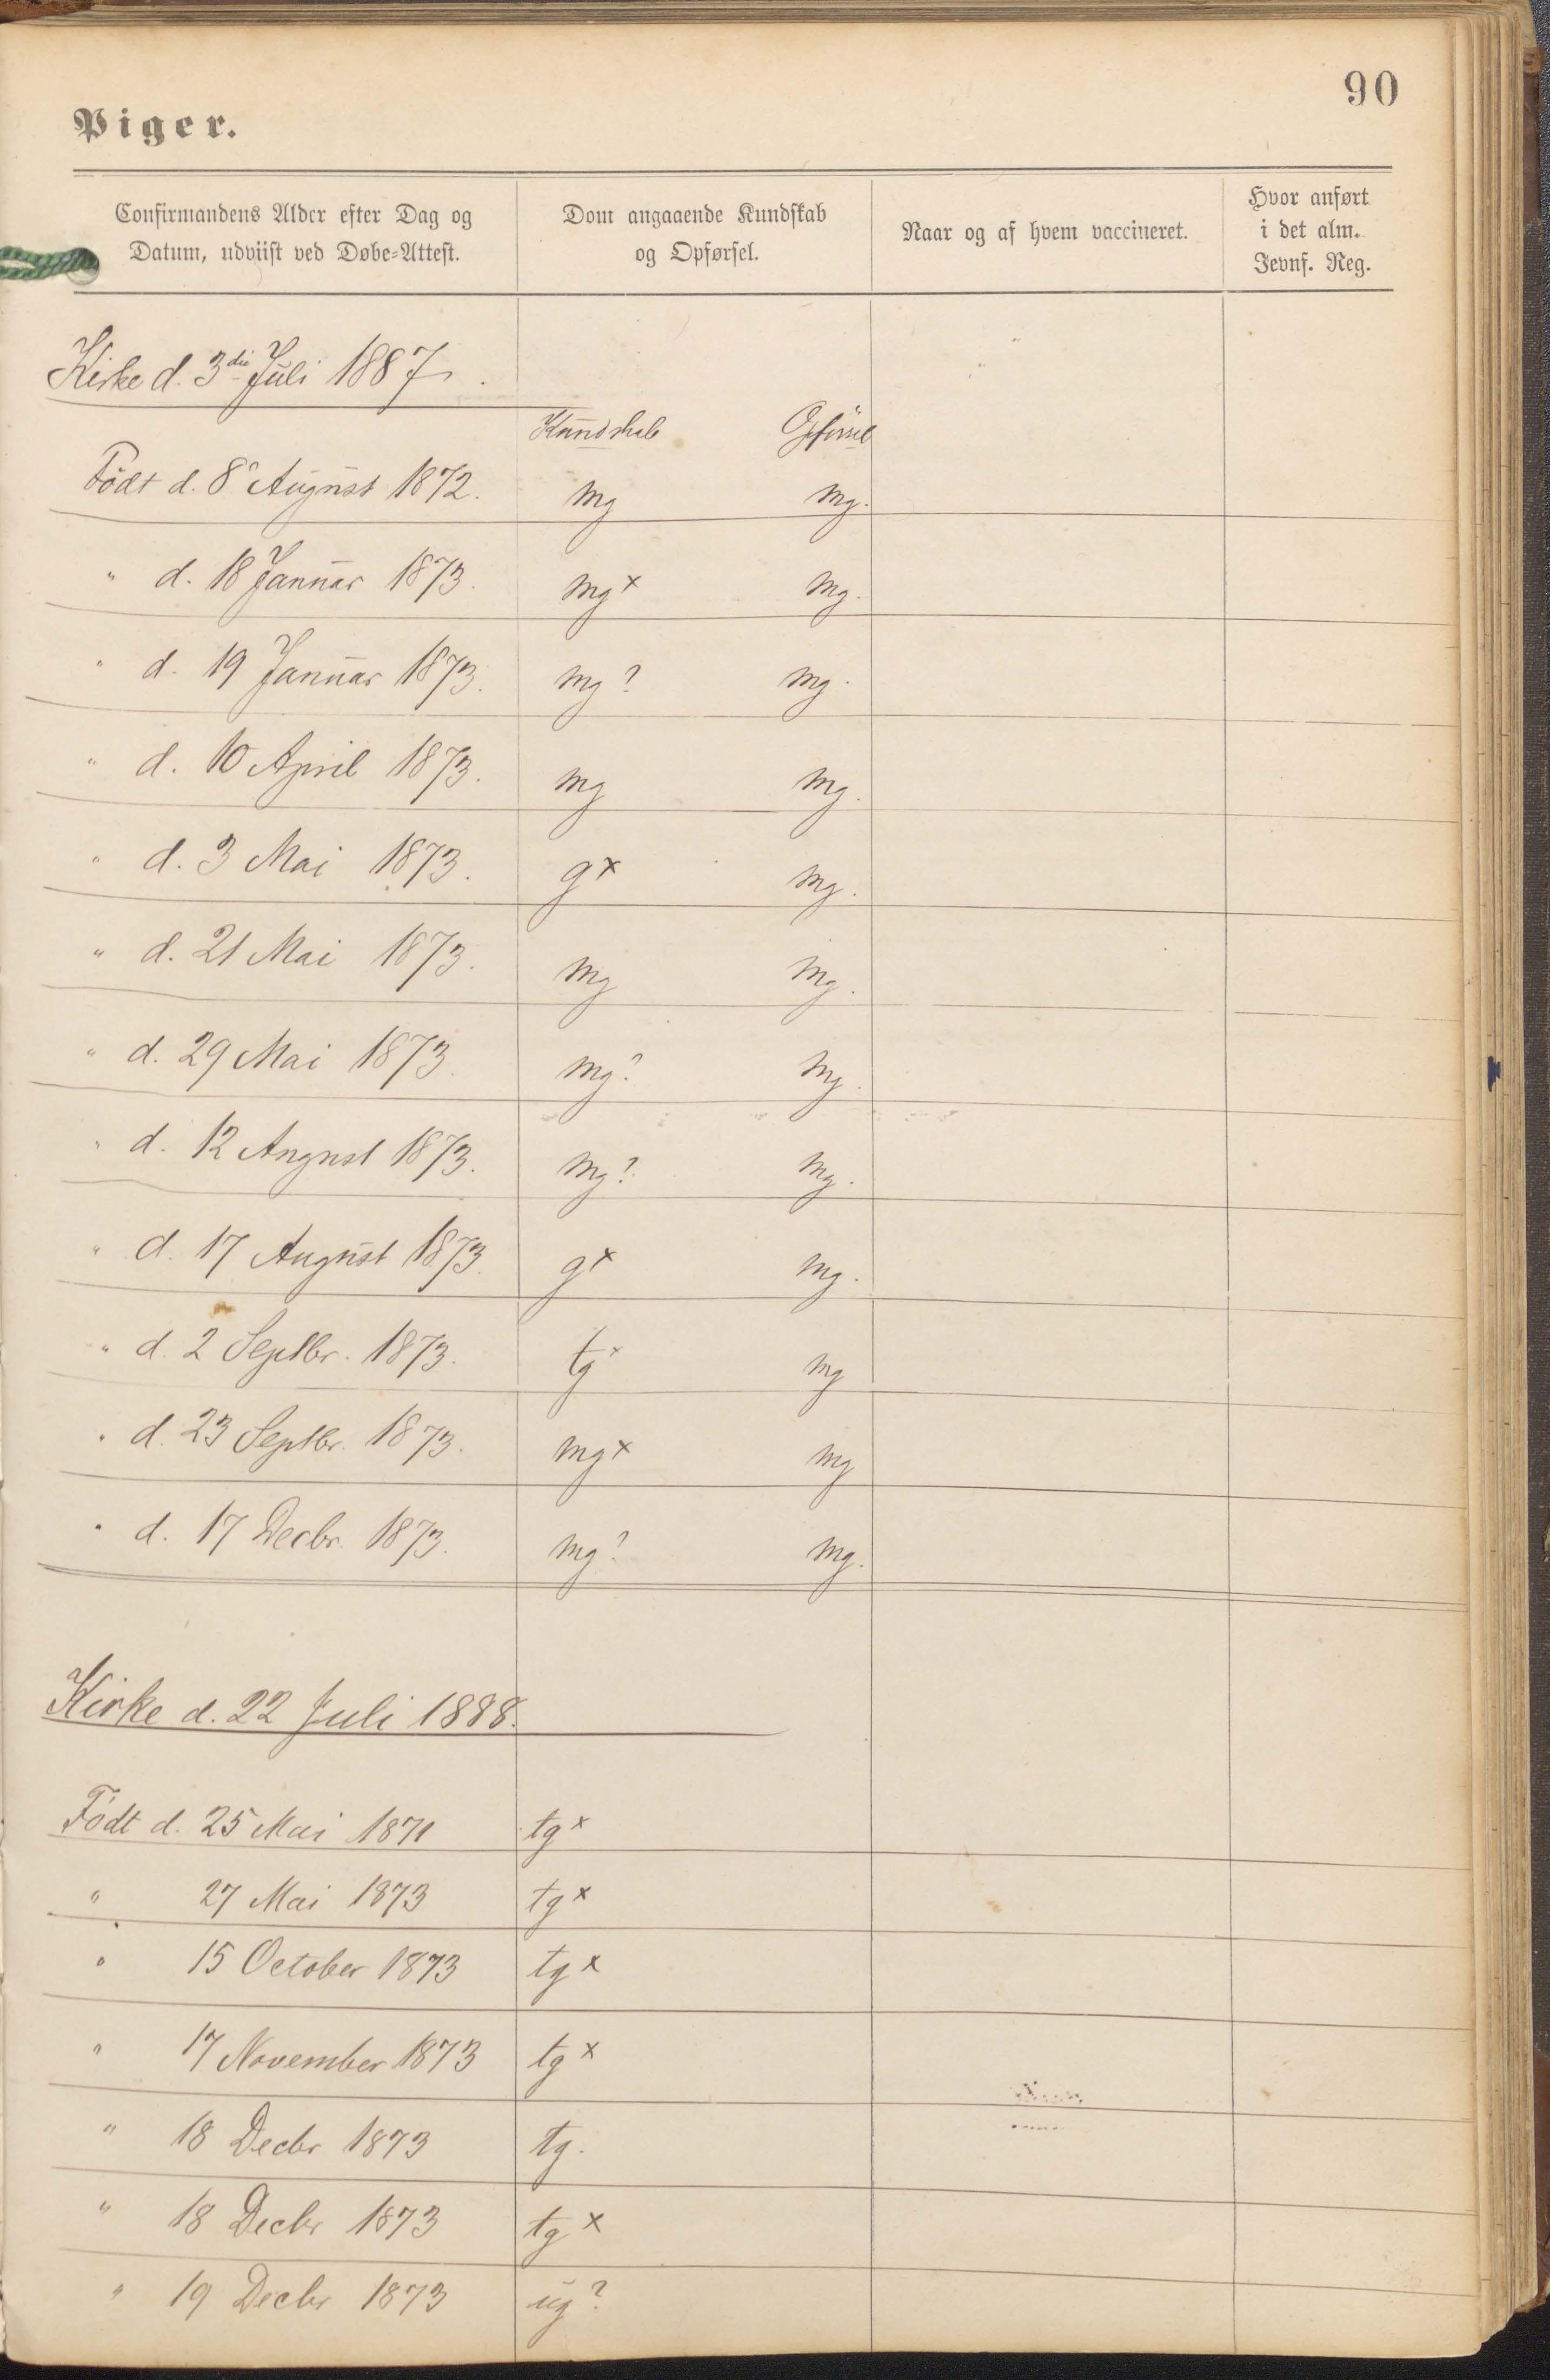 90
Piger.
Confirmandens Alder efter Dag og
Datum, udviist ved Døbe-Attest.
Dom angaaende Kundskab
og Opførsel.
Naar og af hvem vaccineret.
Hvor anført
i det alm.
Jevnf. Reg.
Kirke d. 3die Juli 1887.
Kundskab Opførsel
Født d. 8 August 1872. mg mg.
" d. 18 Januar 1873. mg× mg.
" d. 19 Januar 1873. mg? mg.
" d. 10 April 1873. mg mg.
" d. 3 Mai 1873. g× mg.
" d. 21 Mai 1873. mg mg.
" d. 29 Mai 1873. mg? mg.
" d. 12 August 1873. mg? mg.
" d. 17 August 1873. g× mg.
" d. 2 Septbr. 1873. tg× mg
" d. 23 Septbr. 1873. mg× mg
" d. 17 Decbr. 1873. mg? mg.
Kirke d. 22 Juli 1888.
Født d. 25 Mai 1871 tg×
" 27 Mai 1873 tg×
" 15 October 1873 tg×
" 17 November 1873 tg×
" 18 Decbr 1873 tg.
" 18 Decbr 1873 tg×
" 19 Decbr 1873 ug?